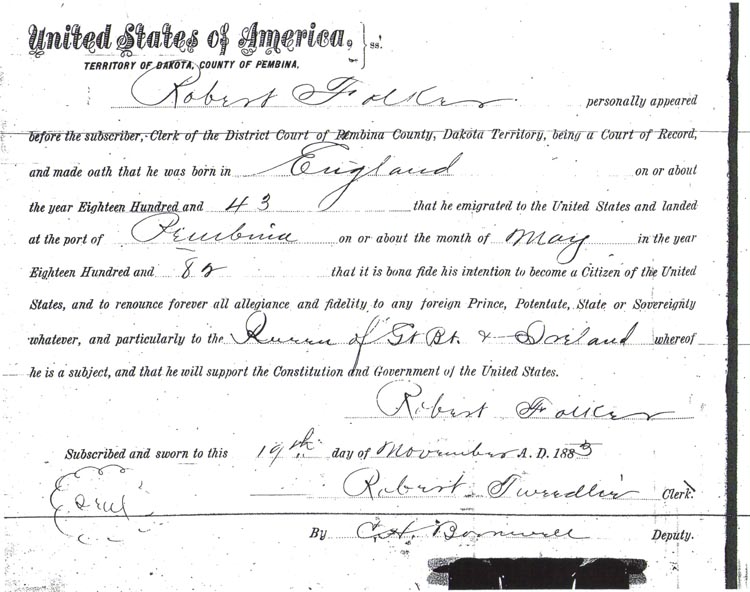 United States of America, } ss.
TERRITORY OF DAKOTA, COUNTY OF PEMBINA,
Robert Folker personally appeared
before the subscriber, Clerk of the District Court of Pembina County, Dakota Territory, being a Court of Record,
and made oath that he was born in England on or about
the year Eighteen Hundred and 43 that he emigrated to the United States and landed
at the port of Pembina on or about the month of May in the year
Eighteen Hundred and 82 that it is bona fide his intention to become a Citizen of the United
States, and to renounce forever all allegiance and fidelity to any foreign Prince, Potentate, State or Sovereignty
whatever, and particularly to the Queen of Gt Bt. & Ireland whereof
he is a subject, and that he will support the Constitution and Government of the United States.
Robert Folker
Subscribed and sworn to this 19th day of November A. D. 1883
Robert Tweedlie Clerk.
Seal
By C. H. Deputy.